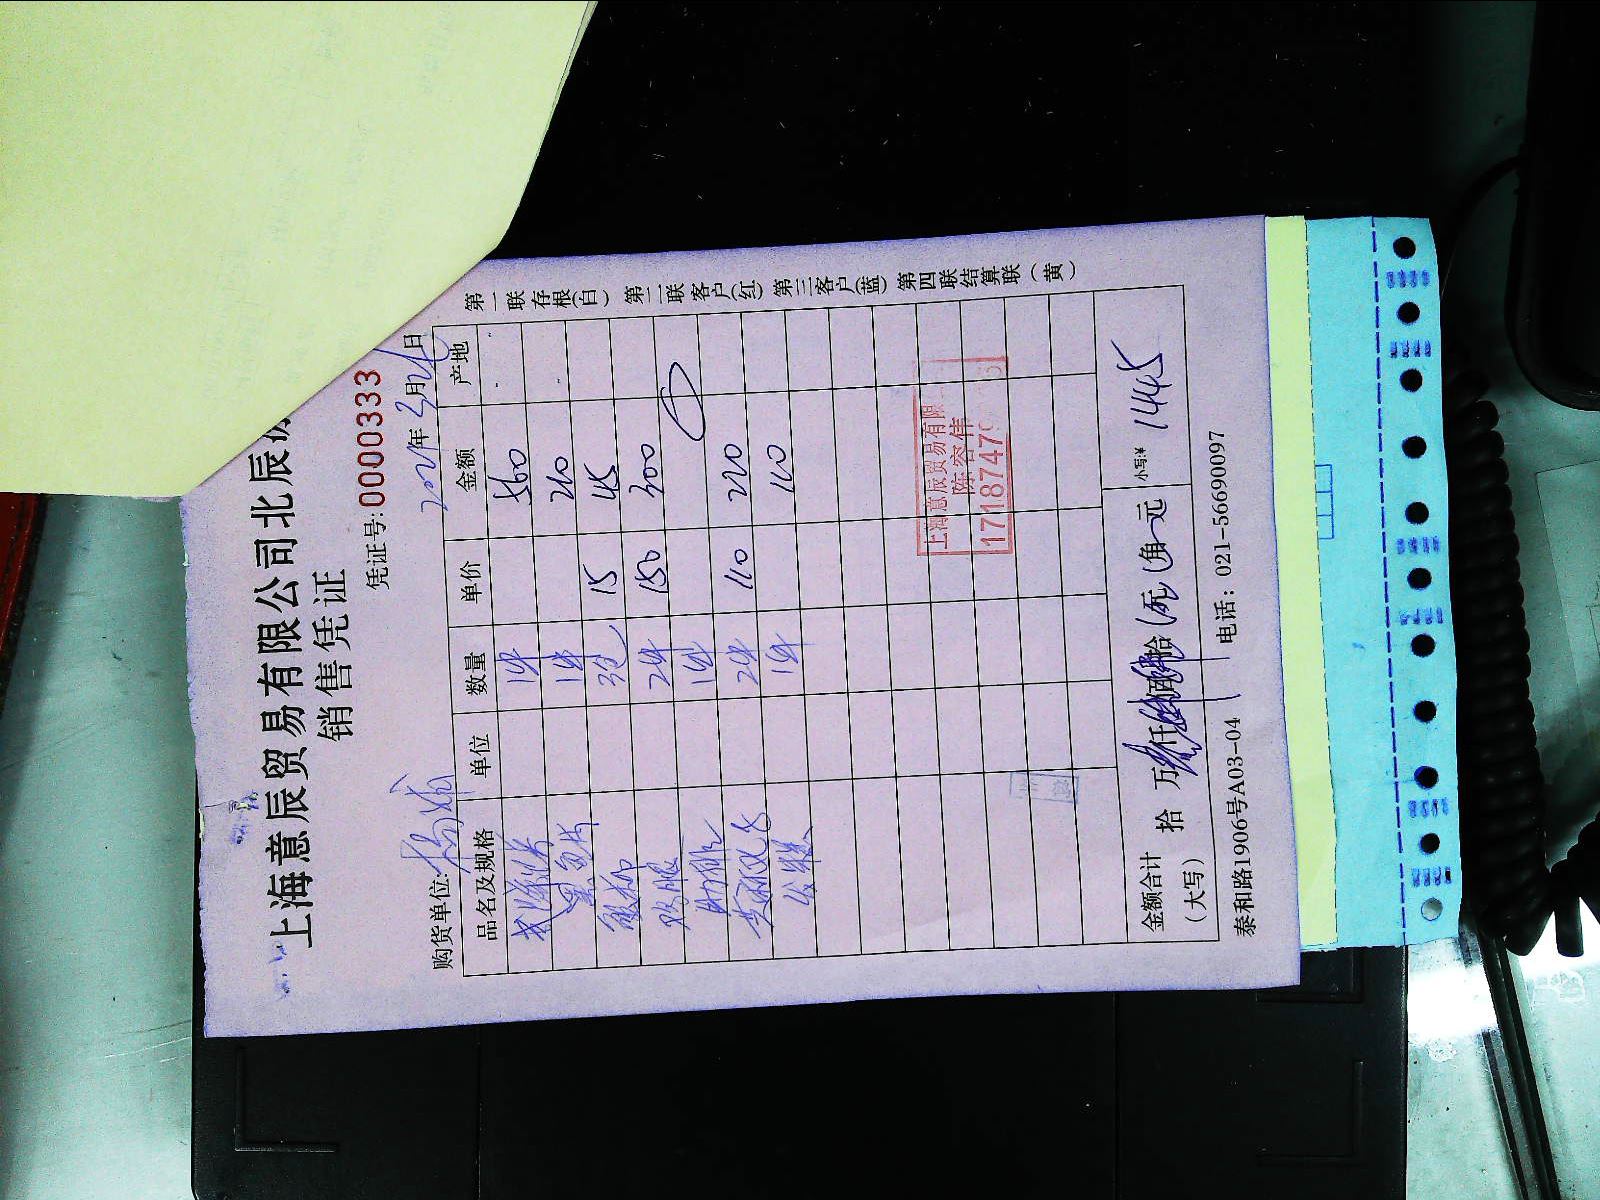 上海意辰贸易有限公司北辰
销售凭证
凭证号:0000333
购货单位: 2021年3月 日
品名及规格 单位 数量 单价 金额 产地
1件 560
黑鱼片 1件 210
3包 15 45
鸡腿 2件 150 300
肋排 1件 0
2件 110 220
1件 110
金额合计(大写) 拾 万 仟 佰 拾 元 角 元 小写:¥ 1445
泰和路1906号A03-04 电话: 021-56690097
第一联存根(白) 第二联客户(红) 第三客户(蓝) 第四联结算联(黄)
上海意辰贸易有限
陈容佳
1718747